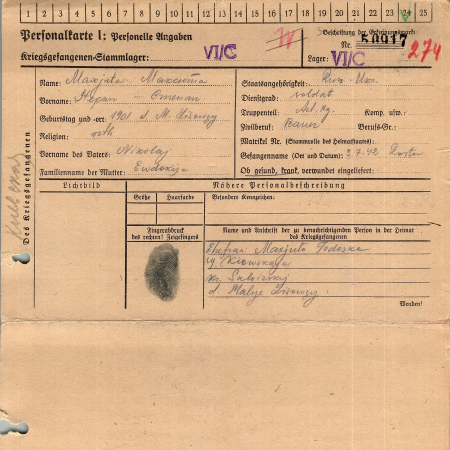 1 2 3 4 5 6 7 8 9 10 11 12 13 14 15 16 17 18 19 20 21 22 23 24 25
Personalkarte I: Personelle Angaben
Beschriftung der Erkennungsmarke
Nr. 50917
274
Kriegsgefangenen-Stammlager: VI/C
Lager: VI/C
Des Kriegsgefangenen
Name: Maxjuta
Vorname: Stepan
Geburtstag und -ort: 1901 d. M.
Religion: orth
Vorname des Vaters: Nikolaj
Familienname der Mutter: Ewdokija
Staatsangehörigkeit: Russ-Ukr.
Dienstgrad: soldat
Truppenteil: Komp. usw.:
Zivilberuf: Bauer Berufs-Gr.:
Matrikel Nr. (Stammrolle des Heimatstaates):
Gefangennahme (Ort und Datum): 9.7.42
Ob gesund, krank, verwundet eingeliefert:
Lichtbild
Nähere Personalbeschreibung
Größe Haarfarbe Besondere Kennzeichen:
Fingerabdruck
des rechten! Zeigefingers
Name und Anschrift der zu benachrichtigenden Person in der Heimat
des Kriegsgefangenen
Ehefrau Maxjuta Fedoska
d. Malye
Wenden!